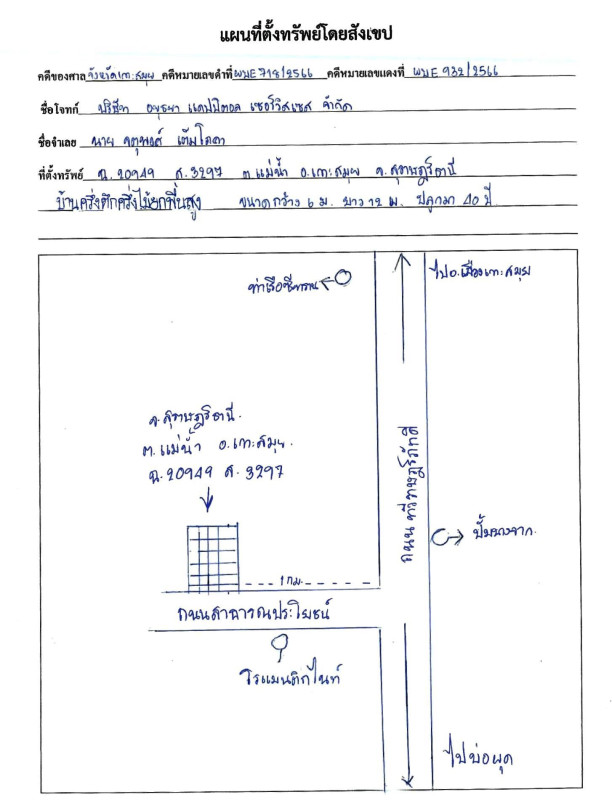 แผนที่ตั้งทรัพย์โดยสังเขป
คดีของศาล จังหวัดเกาะสมุย คดีหมายเลขดำที่ ผบE 718/2566 คดีหมายเลขแดงที่ ผบE 932/2566
ชื่อโจทก์ บริษัท อยุธยา แคปปิตอล เซอร์วิสเซส จำกัด
ชื่อจำเลย นาย จตุพงศ์ เต็มโภคา
ที่ตั้งทรัพย์ ฉ.20949 ส.3297 ต.แม่น้ำ อ.เกาะสมุย จ.สุราษฎร์ธานี
บ้านครึ่งตึกครึ่งไม้ยกพื้นสูง ขนาดกว้าง 6 ม. ยาว 12 ม. ปลูกมา 40 ปี
ท่าเรือซีทราน
ไปอ.เมืองเกาะสมุย
จ.สุราษฎร์ธานี.
ต.แม่น้ำ อ.เกาะสมุย.
ฉ.20949 ส.3297
ถนน ทวีราษฎร์ภักดี
ปั้มบางจาก.
1 กม.
ถนนสาธารณประโยชน์
โรแมนติกไนท์
ไปบ่อผุด